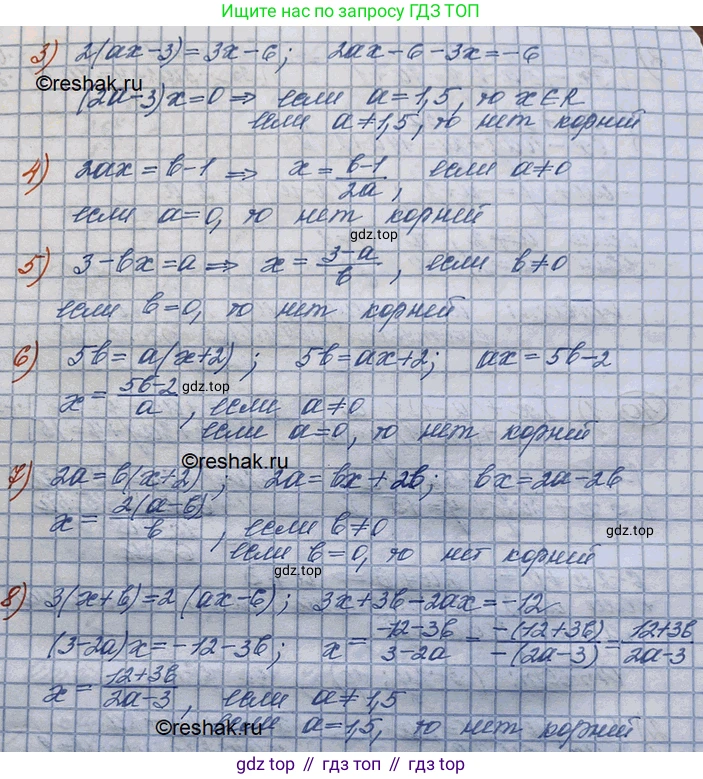 Ищите ответы по запросу ГДЗ ТОП
3) 2(ax-3)=3x-6; 2ax-6-3x=-6
©reshak.ru
(2a-3)x=0 ⇒ если a=1,5, то x∈R
если a≠1,5, то нет корней
4) 2ax=b-1 ⇒ x=\frac{b-1}{2a}, если a≠0
если a=0, то нет корней
gdz.top
5) 3-bx=a ⇒ x=\frac{3-a}{b}, если b≠0
если b=0, то нет корней
6) 5b=a(x+2); 5b=ax+2; ax=5b-2
gdz.top
x=\frac{5b-2}{a}, если a≠0
если a=0, то нет корней
©reshak.ru
7) 2a=b(x+2); 2a=bx+2b; bx=2a-2b
x=\frac{2(a-b)}{b}, если b≠0
gdz.top
если b=0, то нет корней
gdz.top
8) 3(x+b)=2(ax-6); 3x+3b-2ax=-12
(3-2a)x=-12-3b; x=\frac{-12-3b}{3-2a}=\frac{-(12+3b)}{-(2a-3)}=\frac{12+3b}{2a-3}
x=\frac{12+3b}{2a-3}, если a≠1,5
©reshak.ru
если a=1,5, то нет корней
gdz top // гдз топ // gdz.top